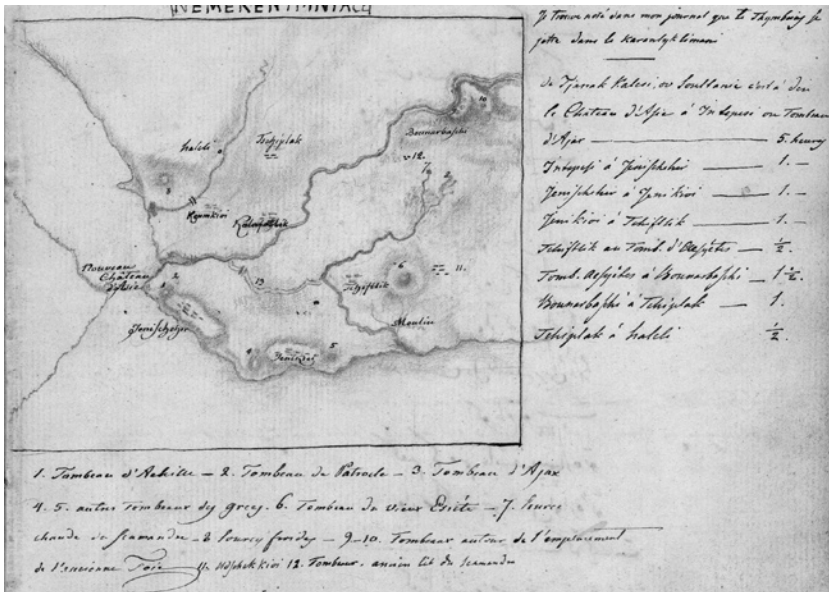 Je trouve noté dans mon journal que le Thymbrius se
jette dans le Karanlyk limani
de Tjanak Kalesi, ou Soultanie c'est à dire
le Chateau d'Asie à Intepesi ou Tombeau
d'Ajax — 5. heures
Intepesi à Jenischehir — 1. —
Jenischehir à Jenikioi — 1. —
Jenikioi à Tchiftlik — 1. —
Tchiftlik au Tomb. d'Aesyetes — ½.
Tomb. Aesyetes à Bounarbaschi — 1 ½.
Bounarbaschi à Tchiplak — 1.
Tchiplak à haleli ½.
10.
Bounarbaschi
12.
7.
8.
haleli
Tschiplak
3
Koumkioi
Kalafatlik
Nouveau
Chateau
d'Asie
2
1
13
Tchiftlik
6
11.
Moulin
Jenischeher
4
Jenikioi
5
1. Tombeau d'Achille — 2. Tombeau de Patrocle — 3. Tombeau d'Ajax
4. 5. autres Tombeaux des grecs. 6. Tombeau du vieux Esiéte — 7. source
chaude du Scamandre — 8 sources froides — 9–10. Tombeaux autour de l'emplacement
de l'ancienne Troie 11. Udjekkioi 12. Tombeaux. ancien lit du Scamandre